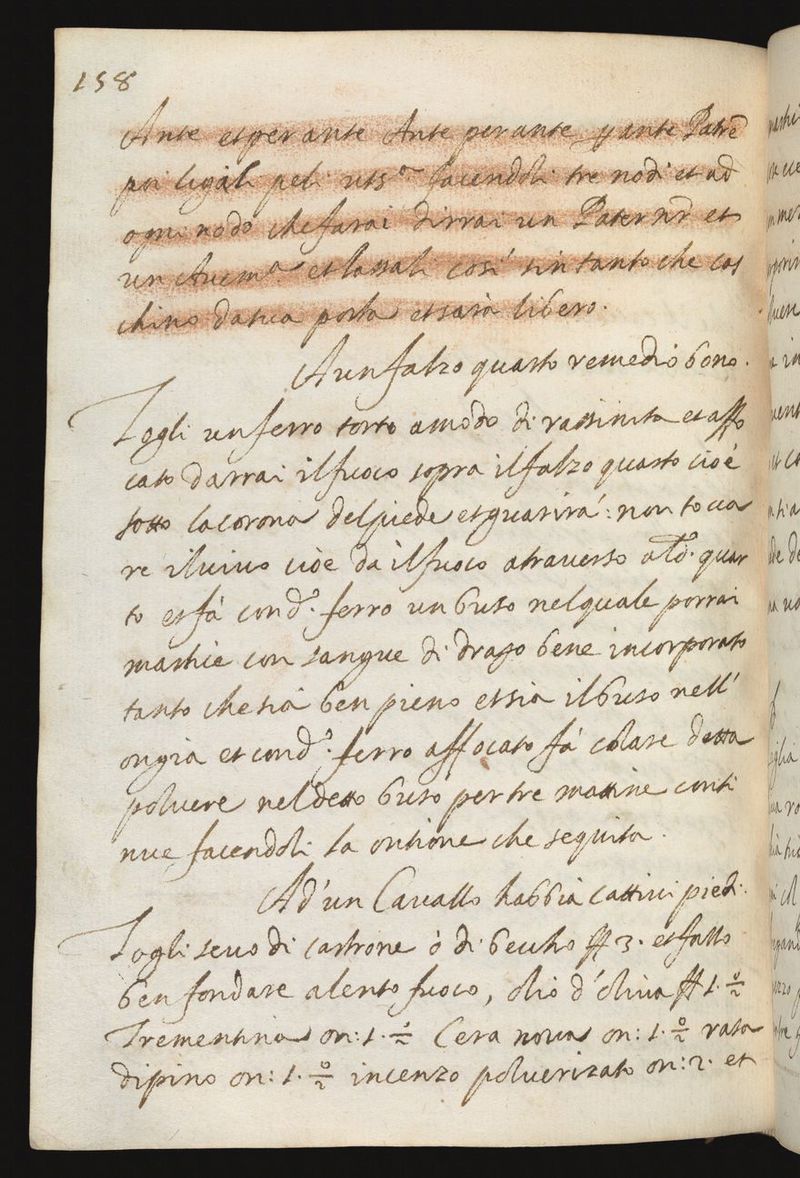 158
Ante et per ante Ante per ante, y ante Patrẽ
poi ligali peli uts.ᵃ facendoli tre nodi et ad
ogni nodo che farai dirrai un Pater nr̃ et
un Auem.ᵃ et lassali cosi' sin tanto che cas
chino da sua posta et sarà libero.
A un falzo quarto remedio bono.
Togli un ferro torto a modo di rassinita et affo
cato darrai il fuoco sopra il falzo quarto cioè
sotto la corona del piede et guarira': non tocca
re il uiuo cioe da il fuoco atrauerso a td.º quar
to et fà con d.º ferro un buso nel quale porrai
mastice con sangue di drago bene incorporato
tanto che sia ben pieno et sia il buso nell'
ongia et con d.º ferro affocato fà colare detta
poluere nel detto buso per tre mattine conti
nue facendoli la ontione che seguita.
Ad'un Cauallo habbia cattiui piedi.
Togli seuo di castrone ò di beccho ff 3. et fallo
ben fondare a lento fuoco, olio d'oliua ff 1. o/2
Trementina on: 1. o/2 Cera noua on: 1. o/2 rasa
di pino on: 1. o/2 incenzo poluerizato on: 2. et